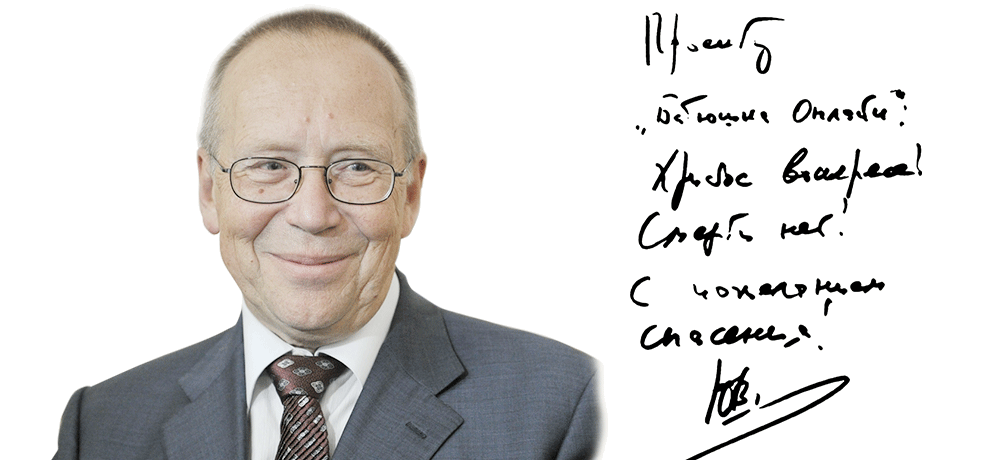 Проекту
„Батюшка Онлайн":
Христос воскресе!
Смерти нет!
С пожеланием
спасения!
ЮВ.